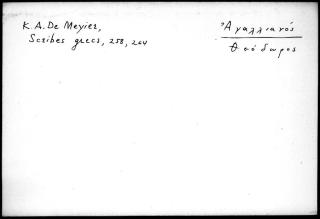 K. A. De Meyier,
Scribes grecs, 258, 264
Ἀγαλλιανός
Θεόδωρος